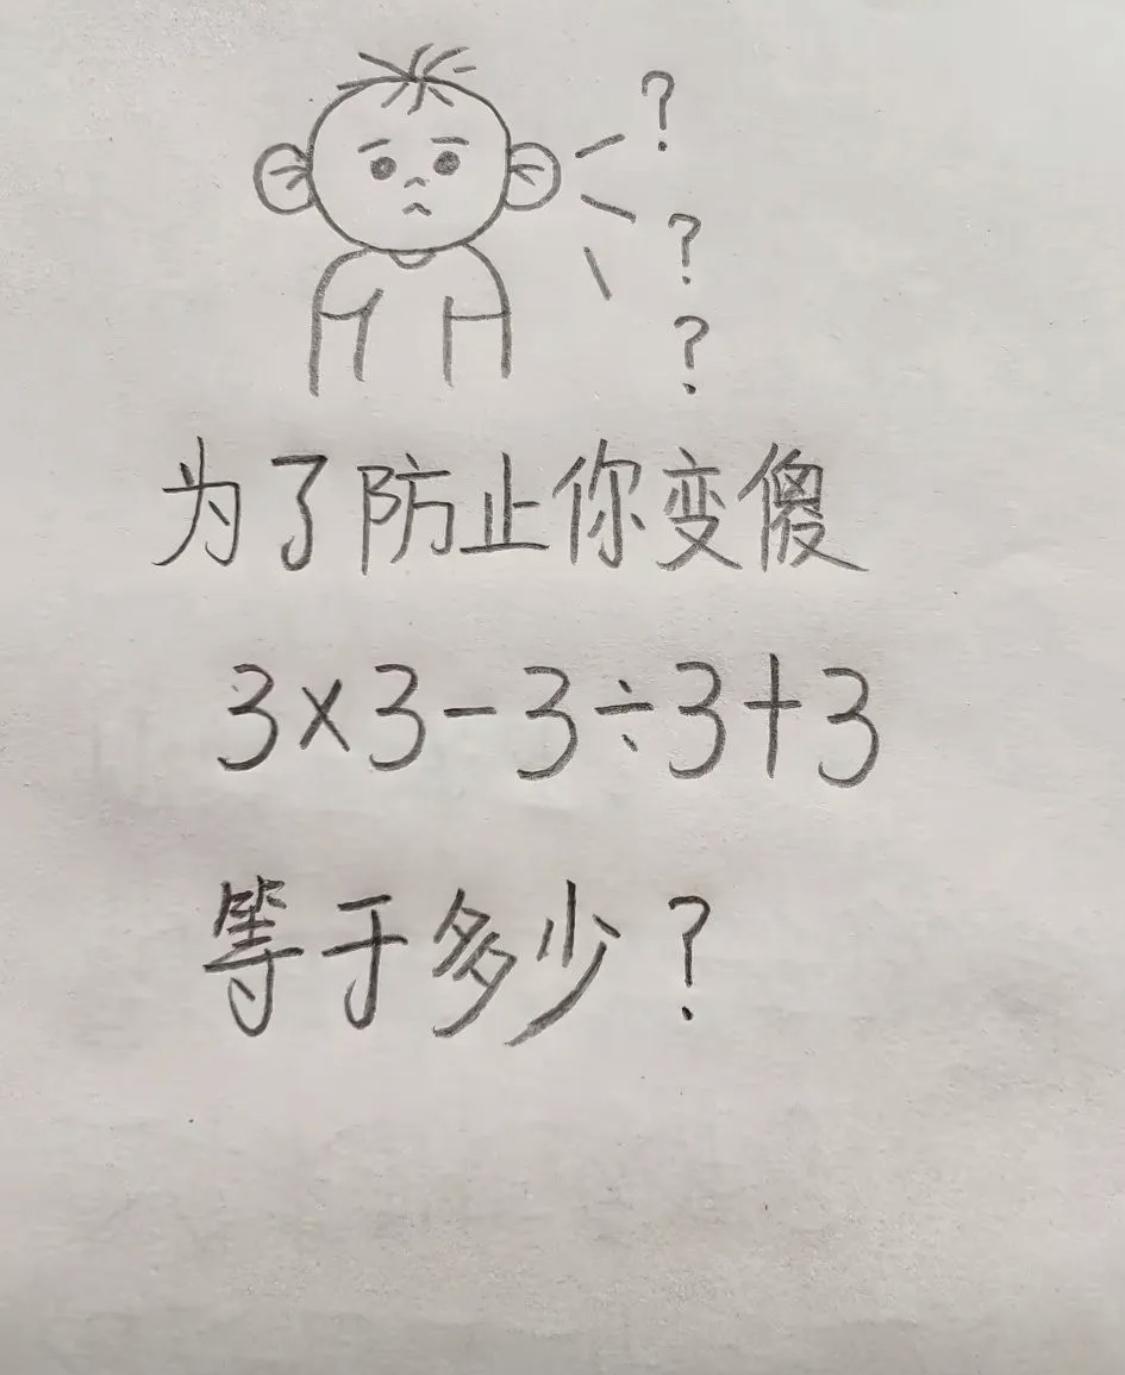 ?
?
?
为了防止你变傻
3×3-3÷3+3
等于多少?